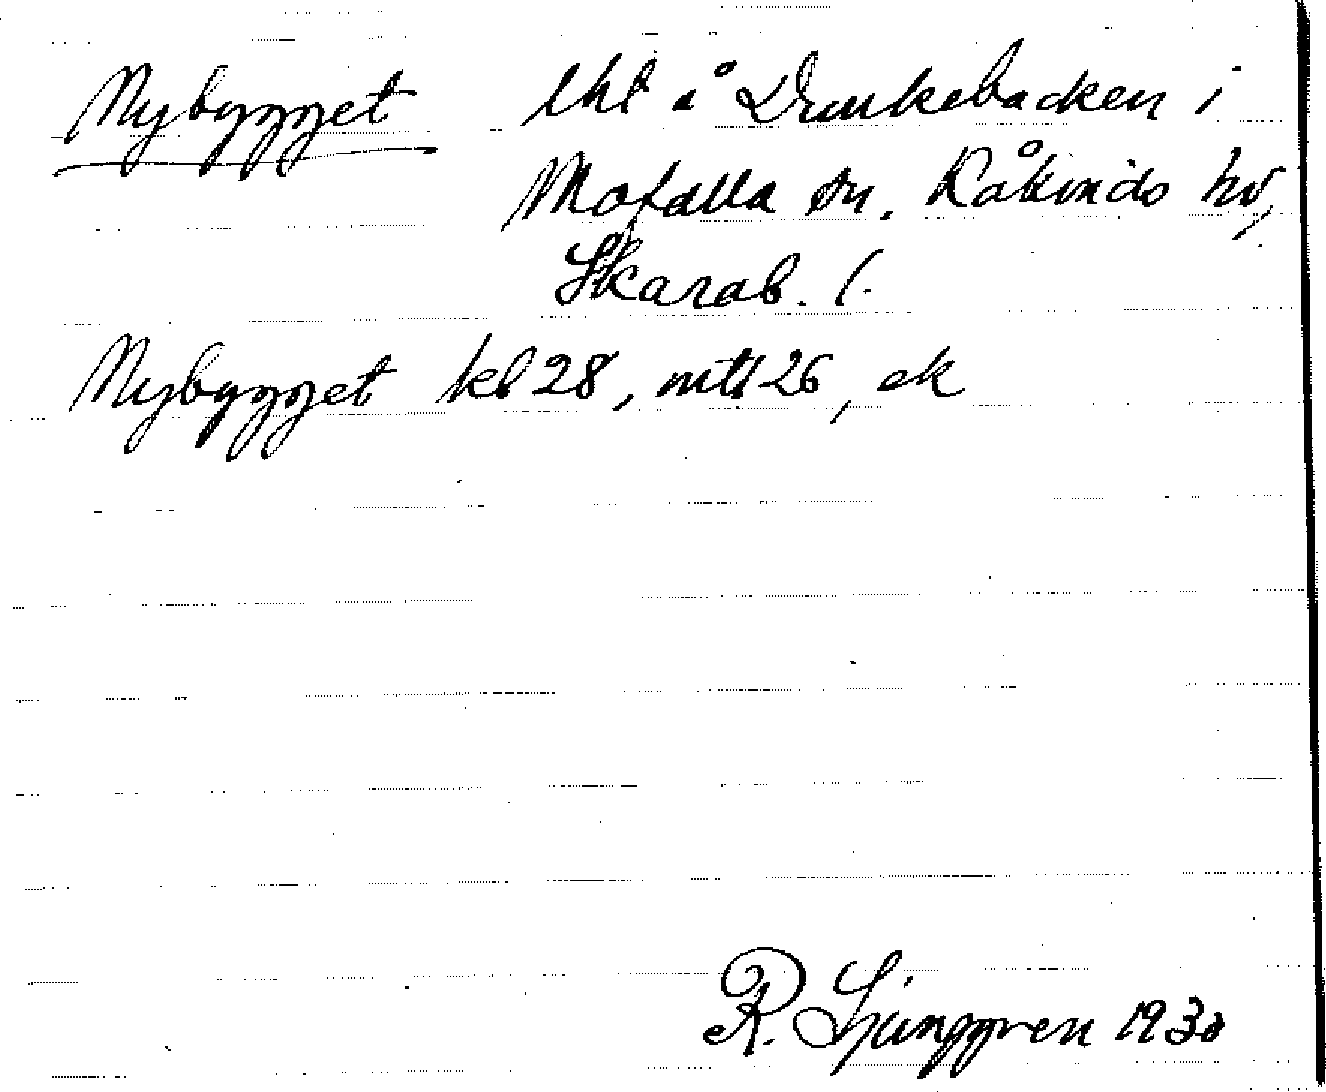 Nybygget lhl å Drinkebacken i
Mofalla sn. Kåkinds hd,
Skarab. l.
Nybygget kb 28, mtl 26, ek
R. Ljunggren 1930